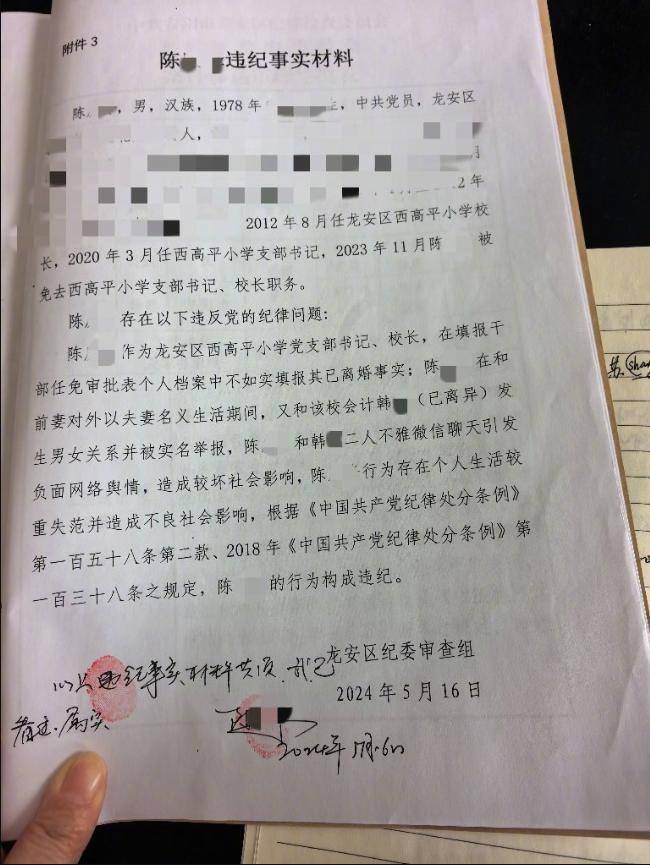 附件 3
陈 违纪事实材料
陈 ，男，汉族，1978 年 ，中共党员，龙安区
人，
月
2 年
2012 年 8 月任龙安区西高平小学校
长，2020 年 3 月任西高平小学支部书记，2023 年 11 月陈 被
免去西高平小学支部书记、校长职务。
陈 存在以下违反党的纪律问题：
陈 作为龙安区西高平小学党支部书记、校长，在填报干
部任免审批表个人档案中不如实填报其已离婚事实；陈 在和
前妻对外以夫妻名义生活期间，又和该校会计韩 （已离异）发
生男女关系并被实名举报，陈 和韩 二人不雅微信聊天引发
负面网络舆情，造成较坏社会影响，陈 行为存在个人生活较
重失范并造成不良社会影响，根据《中国共产党纪律处分条例》
第一百五十八条第二款、2018 年《中国共产党纪律处分条例》第
一百三十八条之规定，陈 的行为构成违纪。
龙安区纪委审查组
2024 年 5 月 16 日
以上违纪事实材料共1页，我已
看过，属实
2024年5月16日
苏